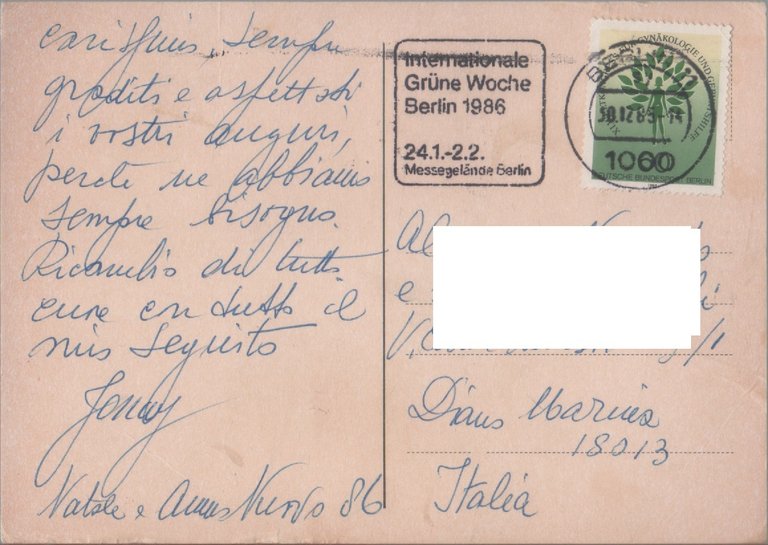 carissimi, sempre
graditi e aspettati
i vostri auguri,
perché ne abbiamo
sempre bisogno.
Ricambio di tutto
cuore con tutto il
mio seguito
Natale e Anno Nuovo 86
Internationale
Grüne Woche
Berlin 1986
24.1.-2.2.
Messegelände Berlin
GYNÄKOLOGIE UND GEBURTSHILFE
DEUTSCHE BUNDESPOST BERLIN
BERLIN
30.12.85-14
1060
Al
e
V.
Diano Marina
18013
Italia